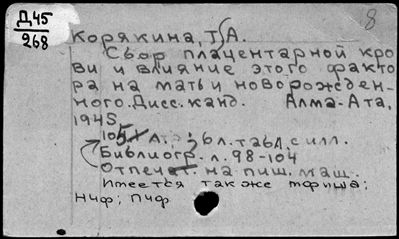 Д45
268
8
Корякина, Т. А.
Сбор плацентарной кро
ви и влияние этого факто
ра на мать и новорожден-
ного. Дисс. канд. Алма-Ата,
1945.
105 л. ; 6 л. табл. с илл.
Библиогр. л. 98-104
Отпечат. на пиш. маш.
Имеется также тфиша:
Нчф; Пчф